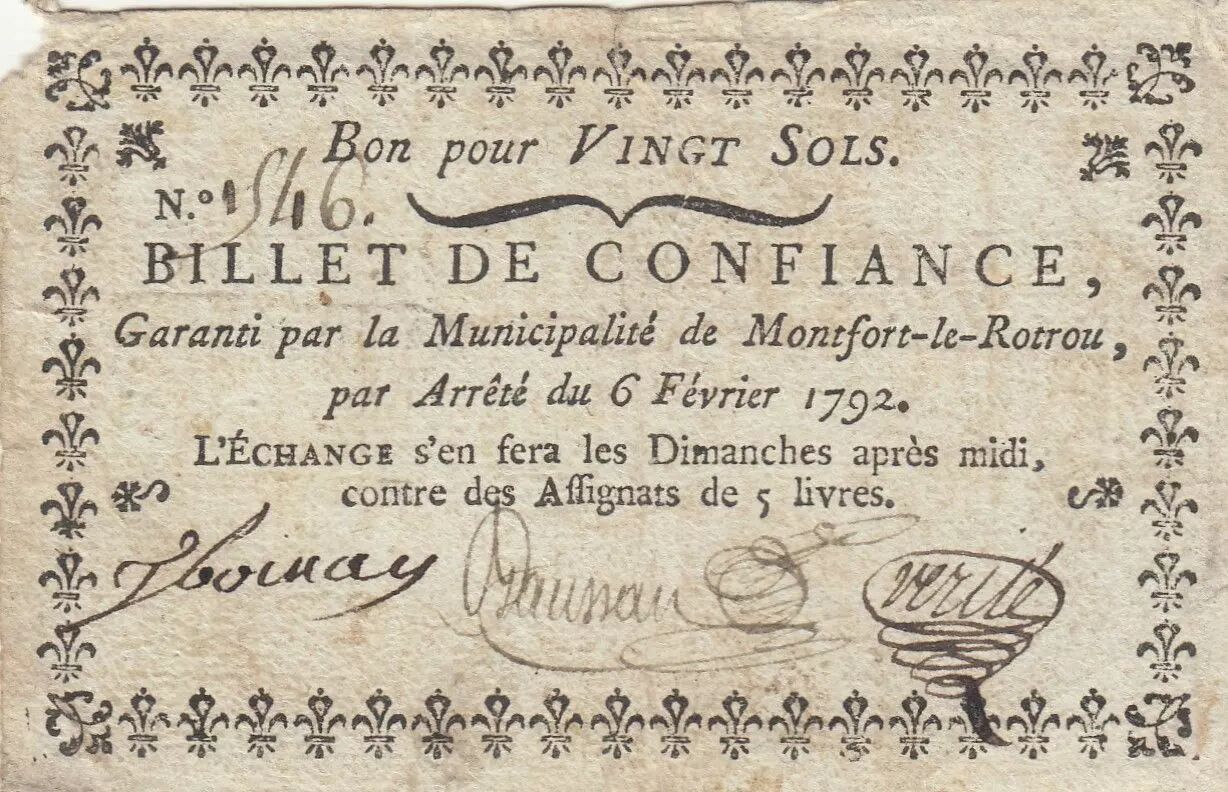 Bon pour VINGT SOLS.
N.º 1546.
BILLET DE CONFIANCE,
Garanti par la Municipalité de Montfort-le-Rotrou,
par Arrêté du 6 Février 1792.
L'ÉCHANGE s'en fera les Dimanches après midi,
contre des Aſſignats de 5 livres.
verité